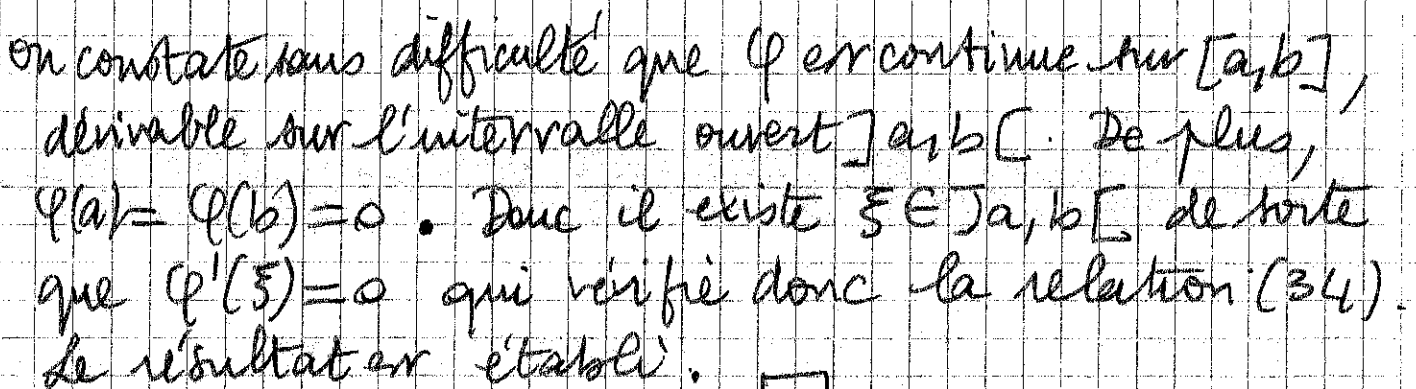 on constate sans difficulté que φ est continue sur [a,b],
dérivable sur l'intervalle ouvert ]a,b[. De plus,
φ(a)=φ(b)=0. Donc il existe ξ∈]a,b[ de sorte
que φ'(ξ)=0 qui vérifie donc la relation (34).
Le résultat est établi. □